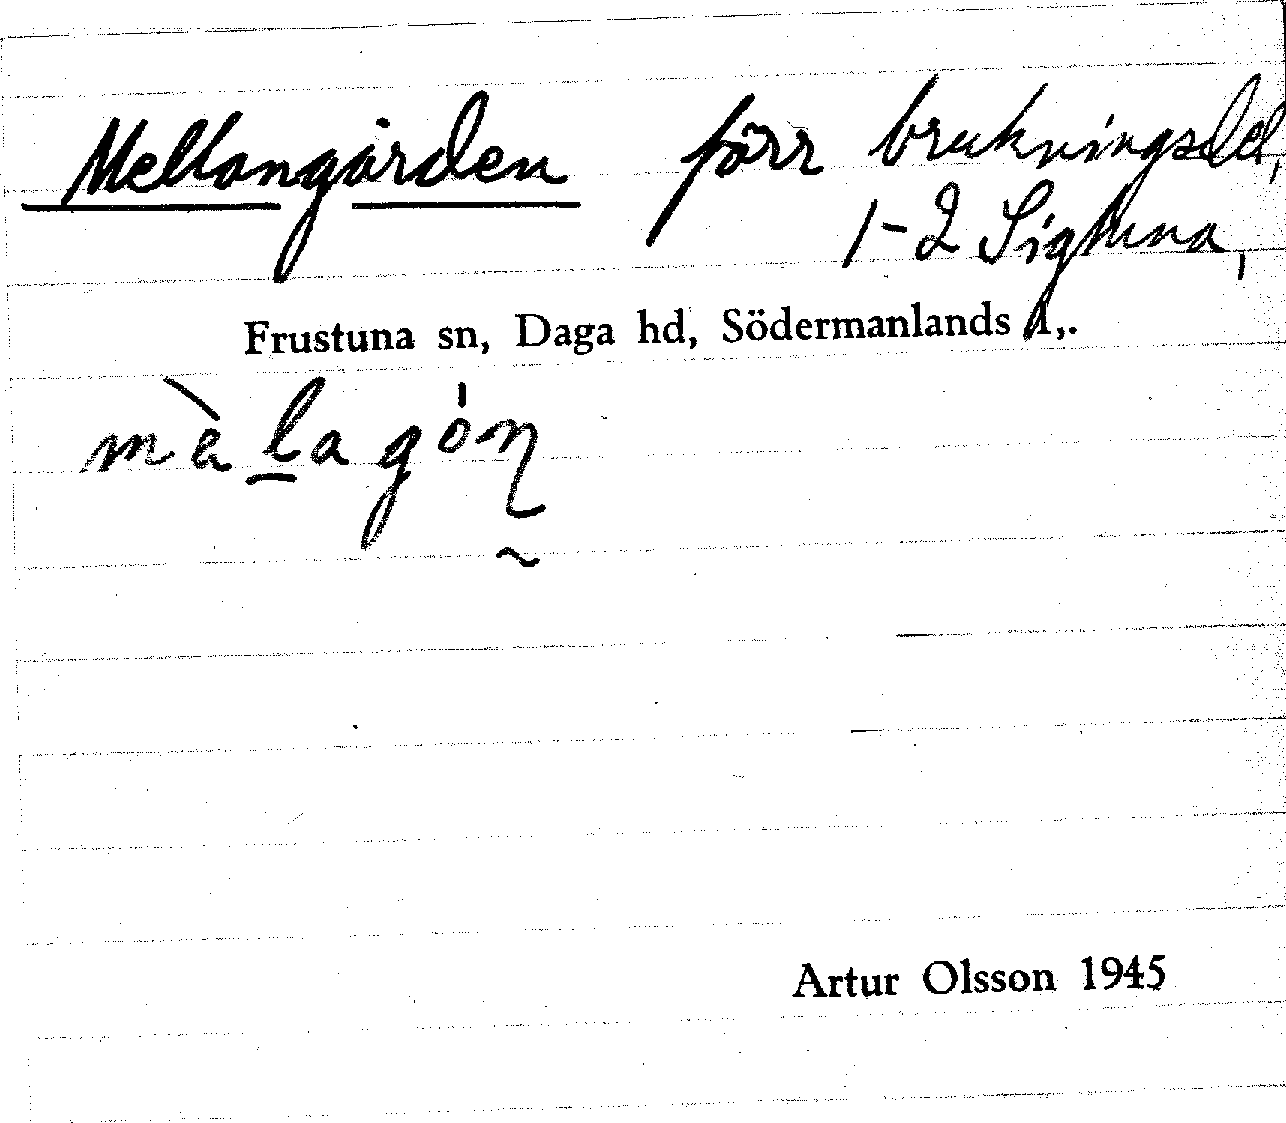 Mellangården förr brukningsdel,
1-2 Sigtuna,
Frustuna sn, Daga hd, Södermanlands l,.
Artur Olsson 1945